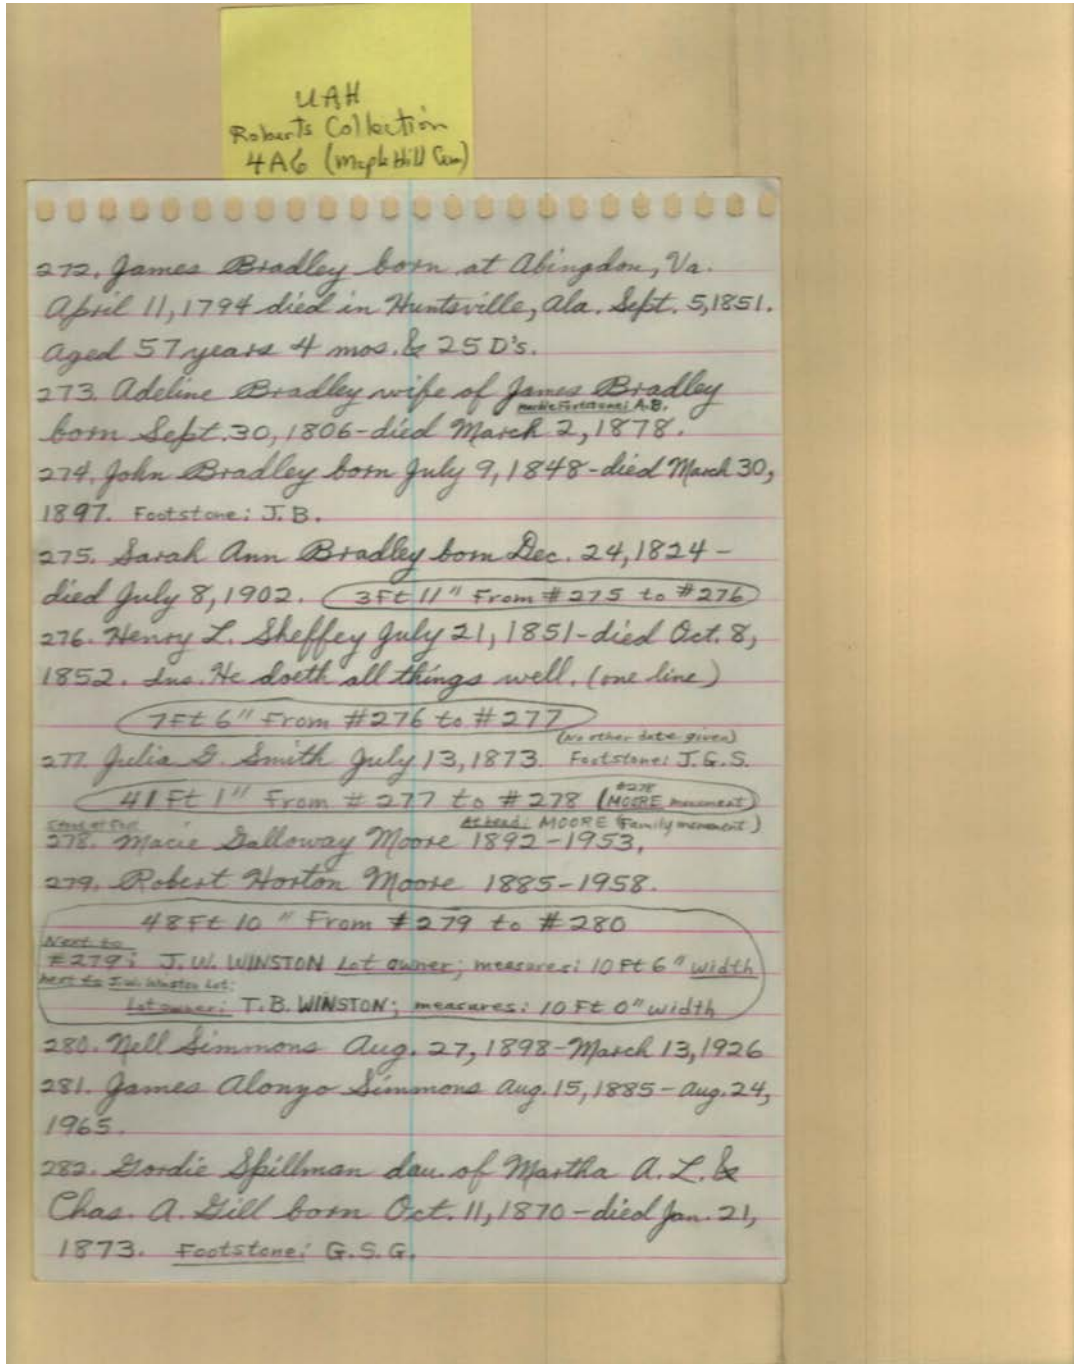 UAH
Roberts Collection
4A6 (Maple Hill Cem)
272. James Bradley born at Abingdon, Va.
April 11, 1794 died in Huntsville, Ala. Sept. 5, 1851.
Aged 57 years 4 mos. & 25 D's.
273. Adeline Bradley wife of James Bradley
Marble Footstone: A.B.
born Sept. 30, 1806-died March 2, 1878.
274. John Bradley born July 9, 1848-died March 30,
1897. Footstone: J.B.
275. Sarah Ann Bradley born Dec. 24, 1824-
died July 8, 1902. 3Ft 11" From #275 to #276
276. Henry L. Sheffey July 21, 1851-died Oct. 8,
1852. Ins. He doeth all things well. (one line)
7Ft 6" From #276 to #277
(No other date given)
277. Julia G. Smith July 13, 1873. Footstone: J.G.S.
41Ft 1" From #277 to #278 (MOORE monument)
#278
At head: MOORE (Family monument)
278. Macie Galloway Moore 1892-1953.
279. Robert Horton Moore 1885-1958.
48Ft 10" From #279 to #280
Next to
#279: J.W. WINSTON Lot owner; measures: 10Ft 6" width
Next to J.W. Winston Lot:
Lot owner: T.B. WINSTON; measures: 10Ft 0" width
280. Nell Simmons Aug. 27, 1898-March 13, 1926
281. James Alonzo Simmons Aug. 15, 1885-Aug. 24,
1965.
282. Gordie Spillman dau. of Martha A. L. &
Chas. A. Gill born Oct. 11, 1870-died Jan. 21,
1873. Footstone: G.S.G.